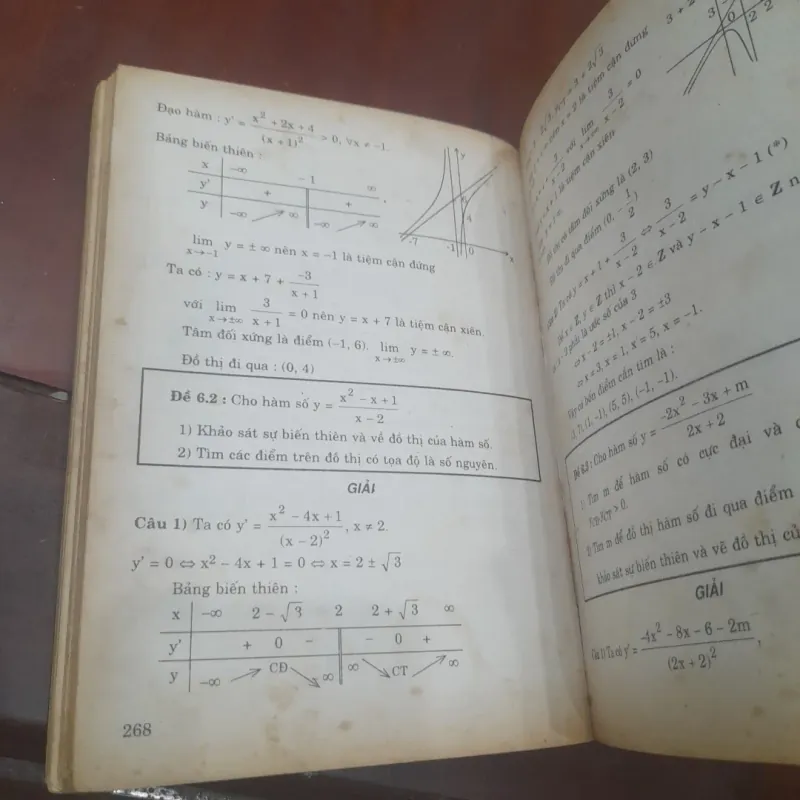 Đạo hàm : y' = (x² + 2x + 4)/(x + 1)² > 0, ∀x ≠ -1.
Bảng biến thiên :
x -∞ -1 ∞
y' + +
y -∞ ↗ ∞ -∞ ↗ ∞
y
-7 -1 0 x
4
lim x→-1 y = ± ∞ nên x = -1 là tiệm cận đứng
Ta có : y = x + 7 + -3/(x + 1)
với lim x→±∞ 3/(x + 1) = 0 nên y = x + 7 là tiệm cận xiên.
Tâm đối xứng là điểm (-1, 6). lim x→±∞ y = ± ∞.
Đồ thị đi qua : (0, 4)
Đề 6.2 : Cho hàm số y = (x² - x + 1)/(x - 2)
1) Khảo sát sự biến thiên và vẽ đồ thị của hàm số.
2) Tìm các điểm trên đồ thị có tọa độ là số nguyên.
GIẢI
Câu 1) Ta có y' = (x² - 4x + 1)/(x - 2)², x ≠ 2.
y' = 0 ⇔ x² - 4x + 1 = 0 ⇔ x = 2 ± √3
Bảng biến thiên :
x -∞ 2 - √3 2 2 + √3 ∞
y' + 0 - - 0 +
y -∞ ↗ CĐ ↘ ∞ ∞ ↘ CT ↗ ∞
268
= 3 + 2√3
là tiệm cận đứng
lim 3/(x - 2) = 0
là tiệm cận xiên
tâm đối xứng là (2, 3)
đi qua điểm (0, -1/2)
Ta có y = x + 1 + 3/(x - 2) ⇔ 3/(x - 2) = y - x - 1 (*)
x ∈ Z, y ∈ Z thì x - 2 ∈ Z và y - x - 1 ∈ Z n
phải là ước số của 3
⇔ x - 2 = ±1, x - 2 = ±3
⇔ x = 3, x = 1, x = 5, x = -1.
điểm cần tìm là :
(1, -1), (5, 5), (-1, -1).
Đề 6.3 : Cho hàm số y = (-2x² - 3x + m)/(2x + 2)
1) Tìm m để hàm số có cực đại và c
> 0.
2) Tìm m để đồ thị hàm số đi qua điểm
khảo sát sự biến thiên và vẽ đồ thị củ
GIẢI
Câu 1) Ta có y' = (-4x² - 8x - 6 - 2m)/(2x + 2)²,